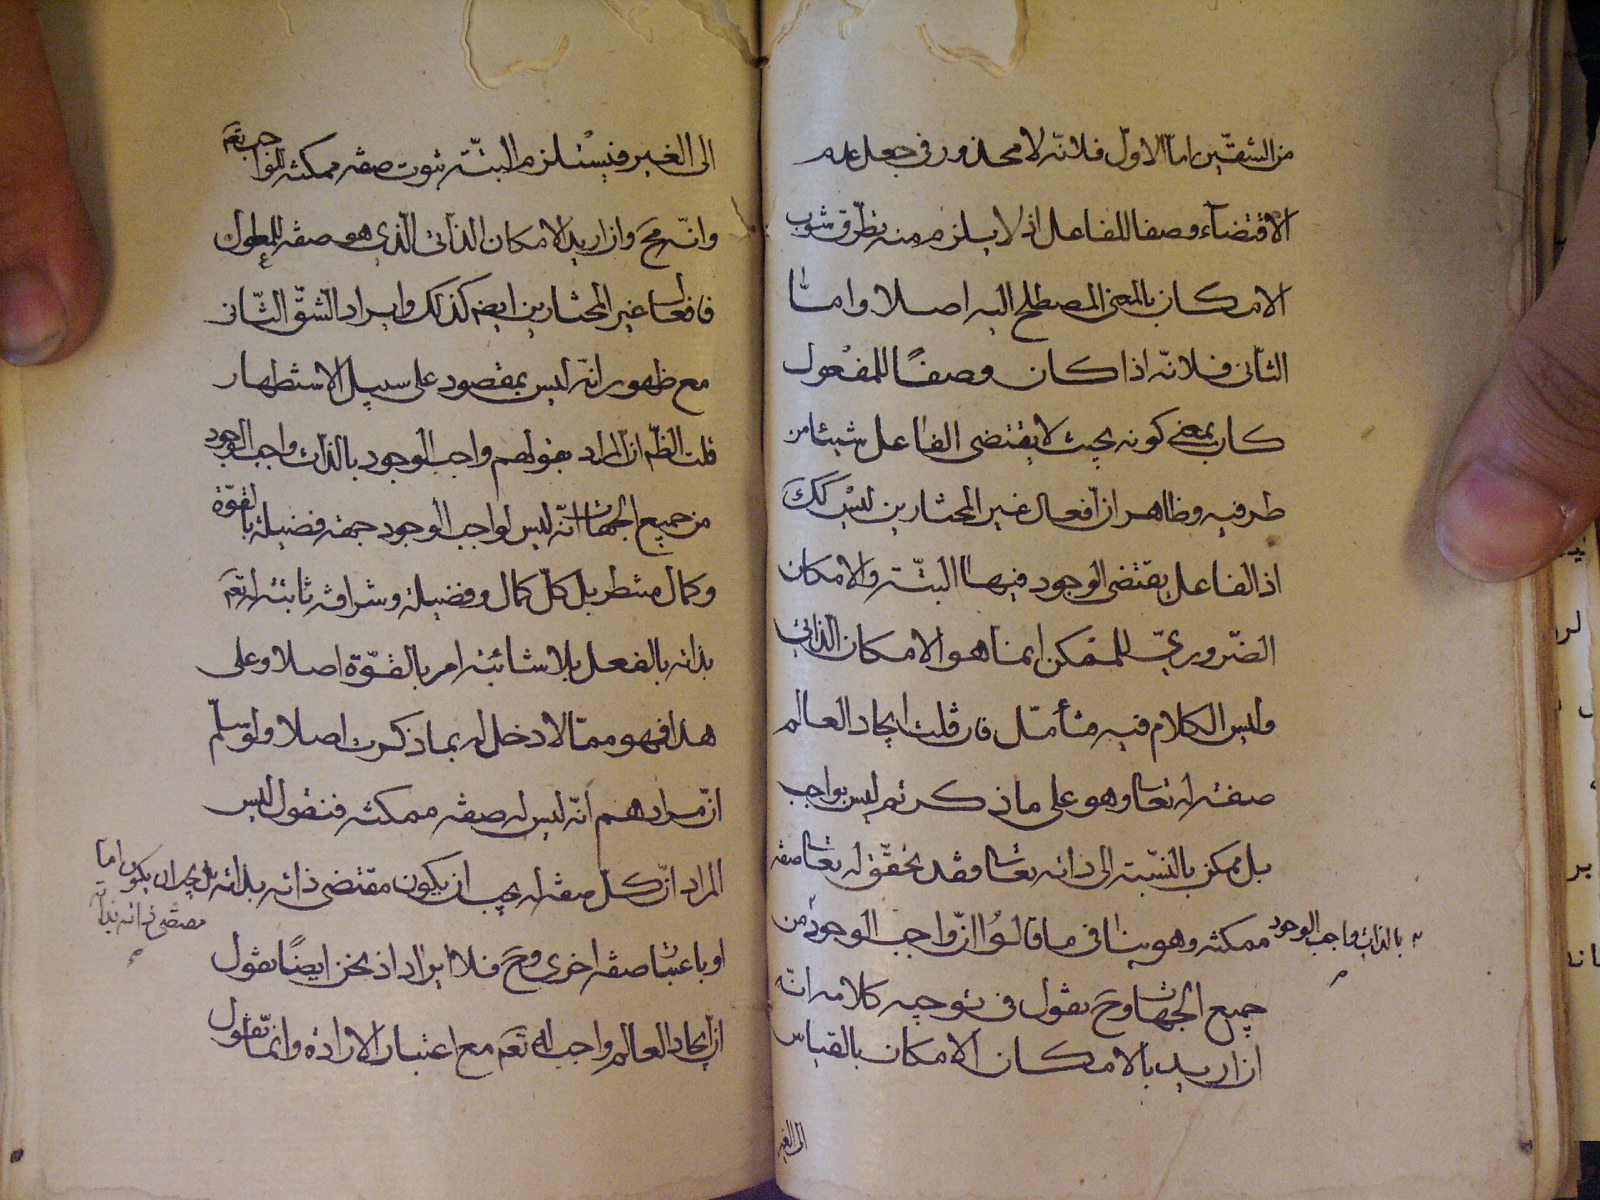 من الشقّين امّا الاوّل فلانّه لا محذور فى جعل عدم
الاقتضآء وصفا للفاعل اذ لا يلزم منه تطرّق شوب
الامكان بالمعنى المصطلح اليه اصلا وامّا
الثانى فلانّه اذا كان وصفًا للمفعول
كان بمعنى كونه بحيث لا يقتضى الفاعل شيئا من
طرفيه وظاهر انّ افعال غير المختارين ليس كَكَ
اذ الفاعل يقتضى الوجود فيها البتّة والامكان
الضّروريّ للممكن انما هو الامكان الذاتى
وليس الكلام فيه فتأمّل فان قلت ايجاد العالم
صفته له تعالى وهو على ما ذكرتم ليس بواجب
بل ممكن بالنّسبة الى ذاته تعالى فقد تحقّق له تعالى صفة
ممكنة وهو ينافى ما قالوا انّ واجب الوجود من
بالذات واجب الوجود
جميع الجهات وحَ نقول فى توجيه كلامه انّه
ان اريد بالامكان الامكان بالقياس
الى الغير
الى الغير فيستلزم البتّة ثبوت صفة ممكنة للواجب تعَم
وانّه مح وان اريد الامكان الذاتى الّذى هو صفة للمعلول
فافعال غير المختارين ايضم كذلك وايراد الشقّ الثّانى
مع ظهور انّه ليس بمقصود على سبيل الاستظهار
قلت الظّم انّ المراد بقولهم واجب الوجود بالذات واجب الوجود
من جميع الجهات انّه ليس لواجب الوجود جهة فضيلة بالقوّة
وكمال منتظر بل كلّ كمال وفضيلة وشرافة ثابتة له تعَم
بذاته بالفعل بلا شائبة امر بالقوّة اصلا وعلى
هذا فهو ممّا لا دخل له بما ذكرت اصلا ولو سلّم
انّ مرادهم انّه ليس له صفة ممكنة فنقول ليس
المراد انّ كل صفة له يجب ان يكون مقتضى ذاته بذاته بل يجب ان يكون اما
مقتضى ذاته بذاته
او باعتبار صفة اخرى وحَ فلا ايراد اذ نحن ايضًا نقول
انّ ايجاد العالم واجب له تعَم مع اعتبار الارادة وانّما نقول